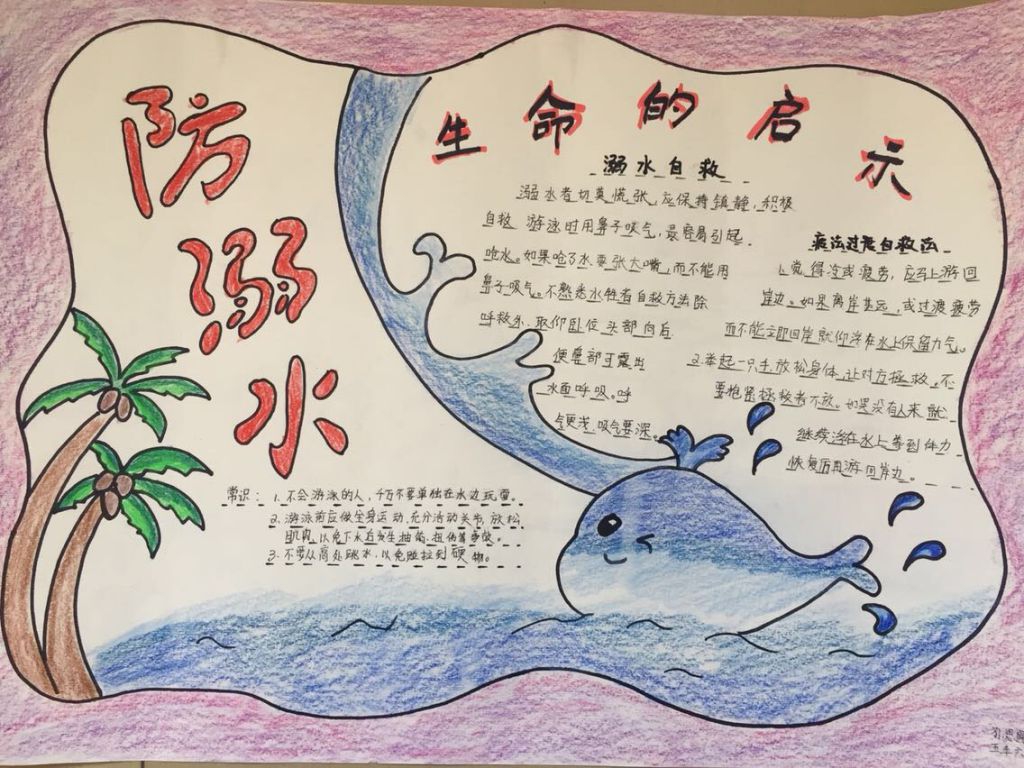 防
溺
水
生命的启示
溺水自救
溺水者切莫慌张,应保持镇静,积极
自救 游泳时用鼻子吸气,最容易引起
呛水。如果呛了水要张大嘴,而不能用
鼻子吸气。不熟悉水性者自救方法除
呼救外,取仰卧位 头部向后
便鼻部可露出
水面呼吸。呼
气要浅,吸气要深。
疲法过度自救法
1.觉得冷或疲劳,应马上游回
岸边。如果离岸甚远,或过渡疲劳
而不能立即回岸就仰浮在水上保留力气。
2.举起一只手,放松身体,让对方拯救,不
要抱紧拯救者不放。如果没有人来 就
继续浮在水上等到体力
恢复后再游回岸边。
常识: 1.不会游泳的人,千万不要单独在水边玩耍。
2.游泳前应做全身运动,充分活动关节,放松
肌肉,以免下水后发生抽筋、扭伤等事故。
3.不要从高处跳水,以免碰到硬物。
五年六